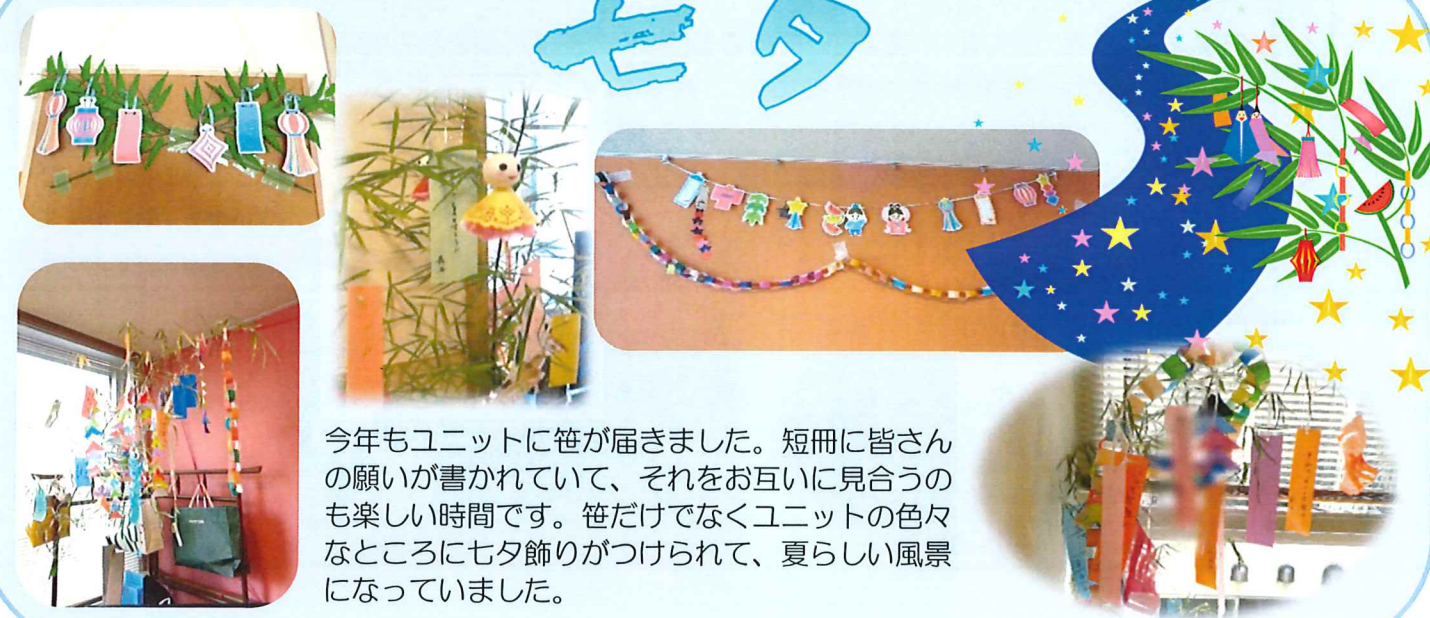 七夕
今年もユニットに笹が届きました。短冊に皆さん
の願いが書かれていて、それをお互いに見合うの
も楽しい時間です。笹だけでなくユニットの色々
なところに七夕飾りがつけられて、夏らしい風景
になっていました。